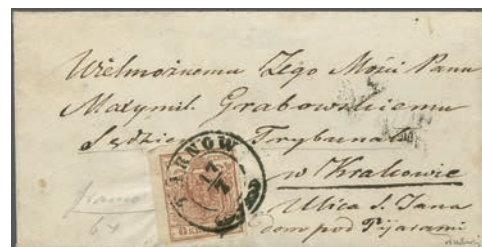 Wielmożnemu Jego Mości Panu
Maxymil. Grabowskiemu
Sędzie Trybuna
w Krakowie
Ulica S. Jana
dom pod Pijarami
TARNOW
17
7
franco
6x
6 KR